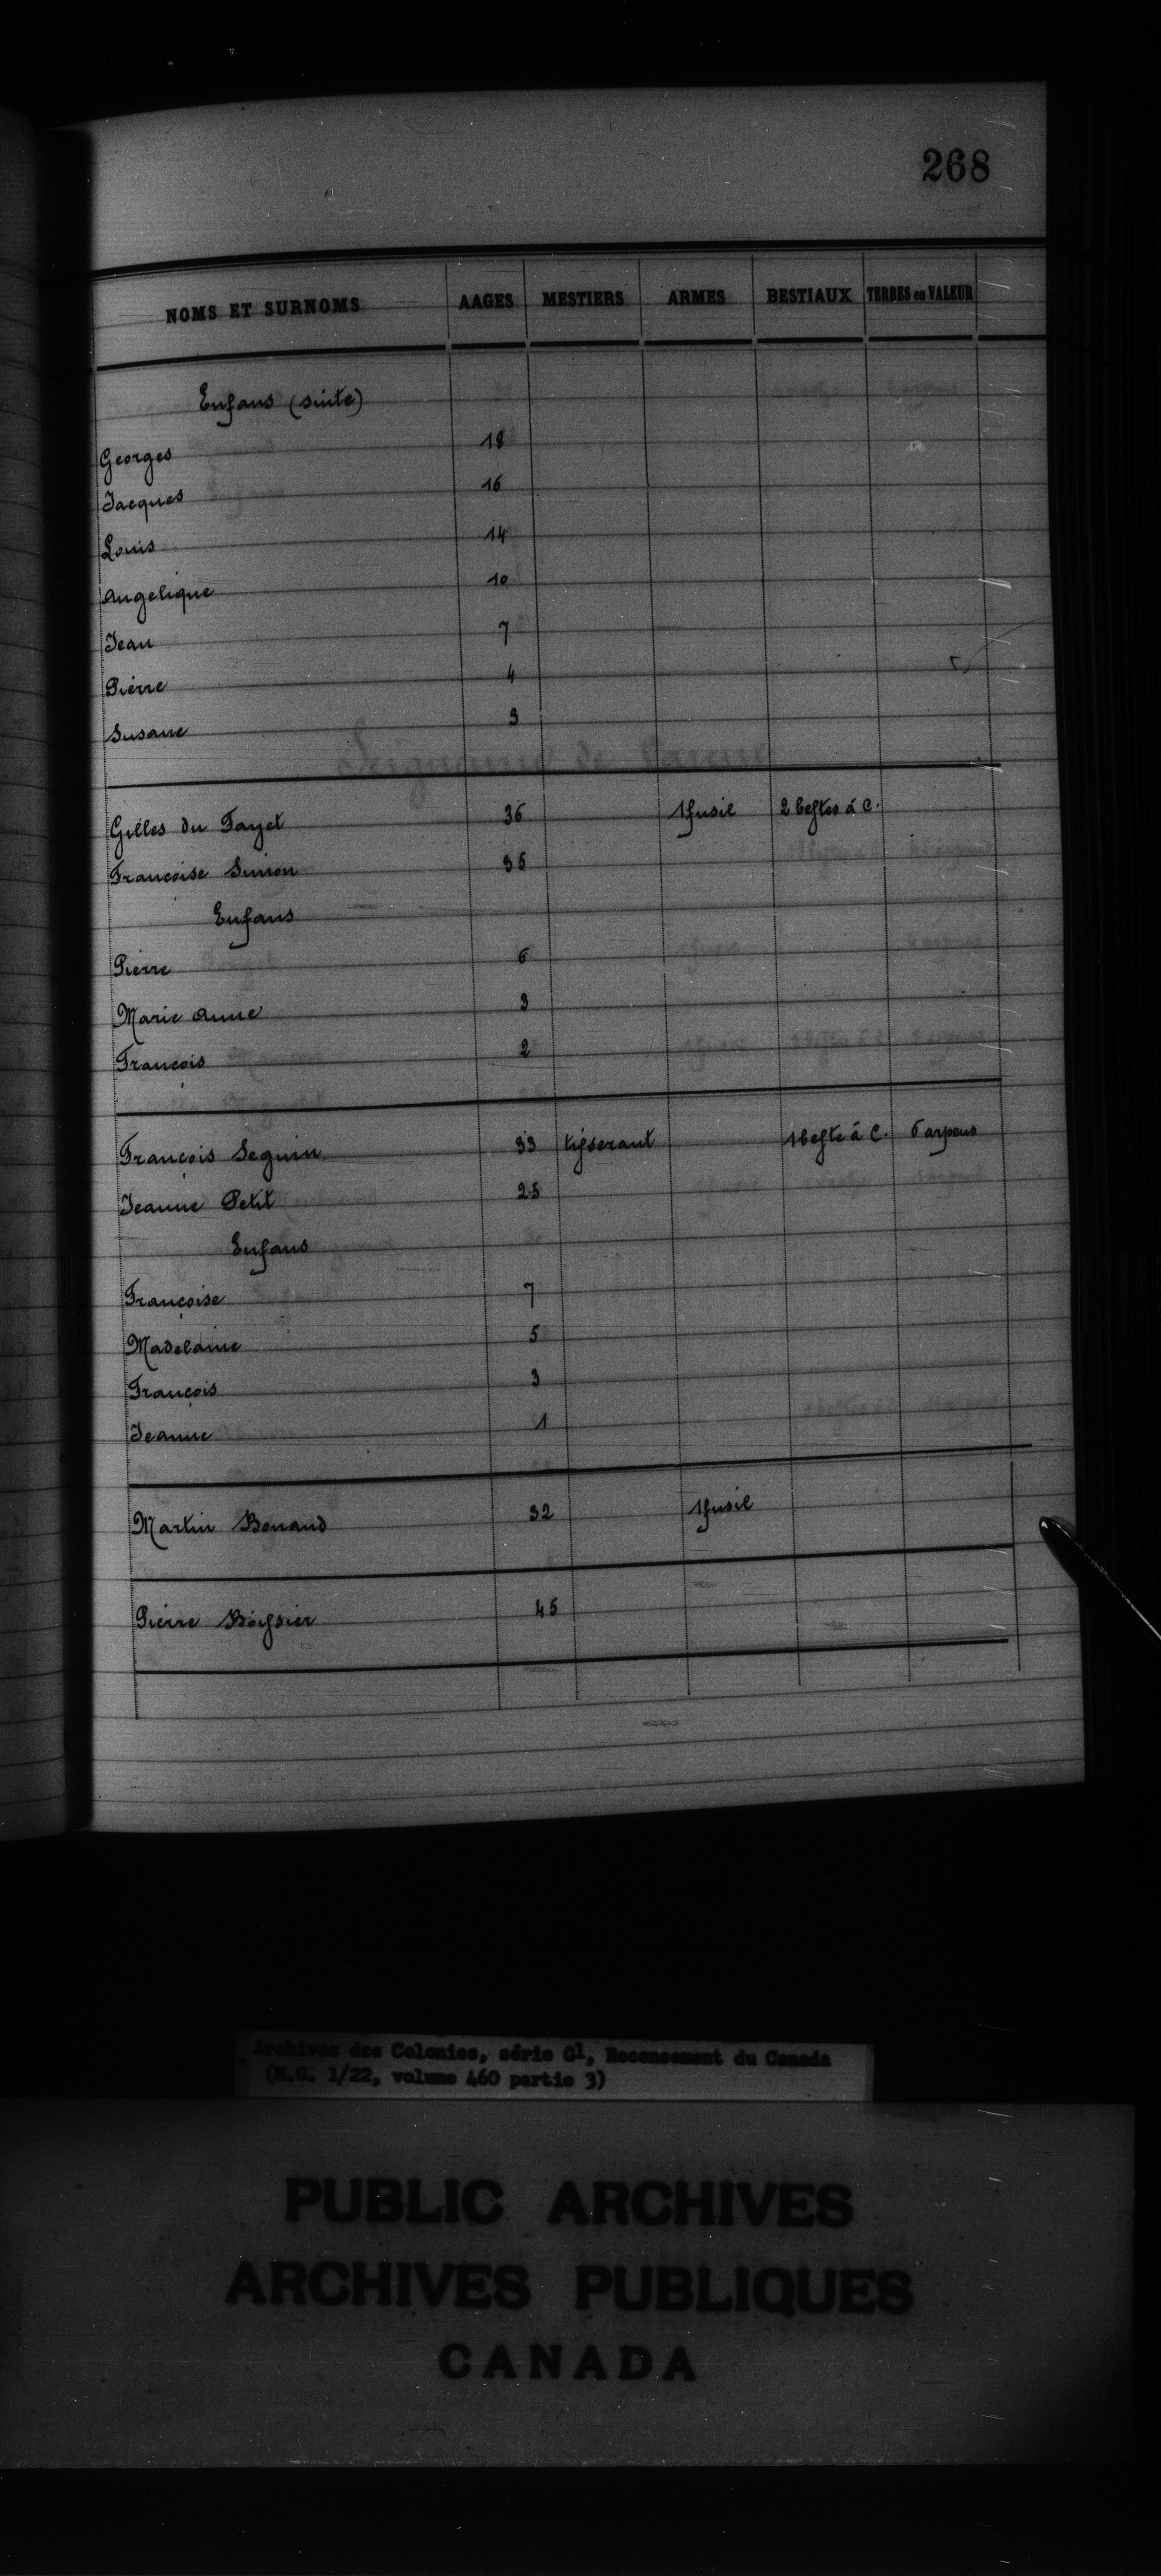 268
NOMS ET SURNOMS AAGES MESTIERS ARMES BESTIAUX TERRES en VALEUR
Enfans (suite)
Georges 18
Jacques 16
Louis 14
Angelique 10
Jean 7
Pierre 4
Susane 3
Gilles du Fayet 36 1 fusil 2 bestes á C.
Francoise Simon 35
Enfans
Pierre 6
Marie Anne 3
François 2
François Seguin 33 tisserant 1 beste á C. 6 arpens
Jeanne Petit 25
Enfans
Françoise 7
Madelaine 5
François 3
Jeanne 1
Martin Bonaud 32 1 fusil
Pierre Boissier 45
Archives des Colonies, série G1, Recensement du Canada
(M.G. 1/22, volume 460 partie 3)
PUBLIC ARCHIVES
ARCHIVES PUBLIQUES
CANADA